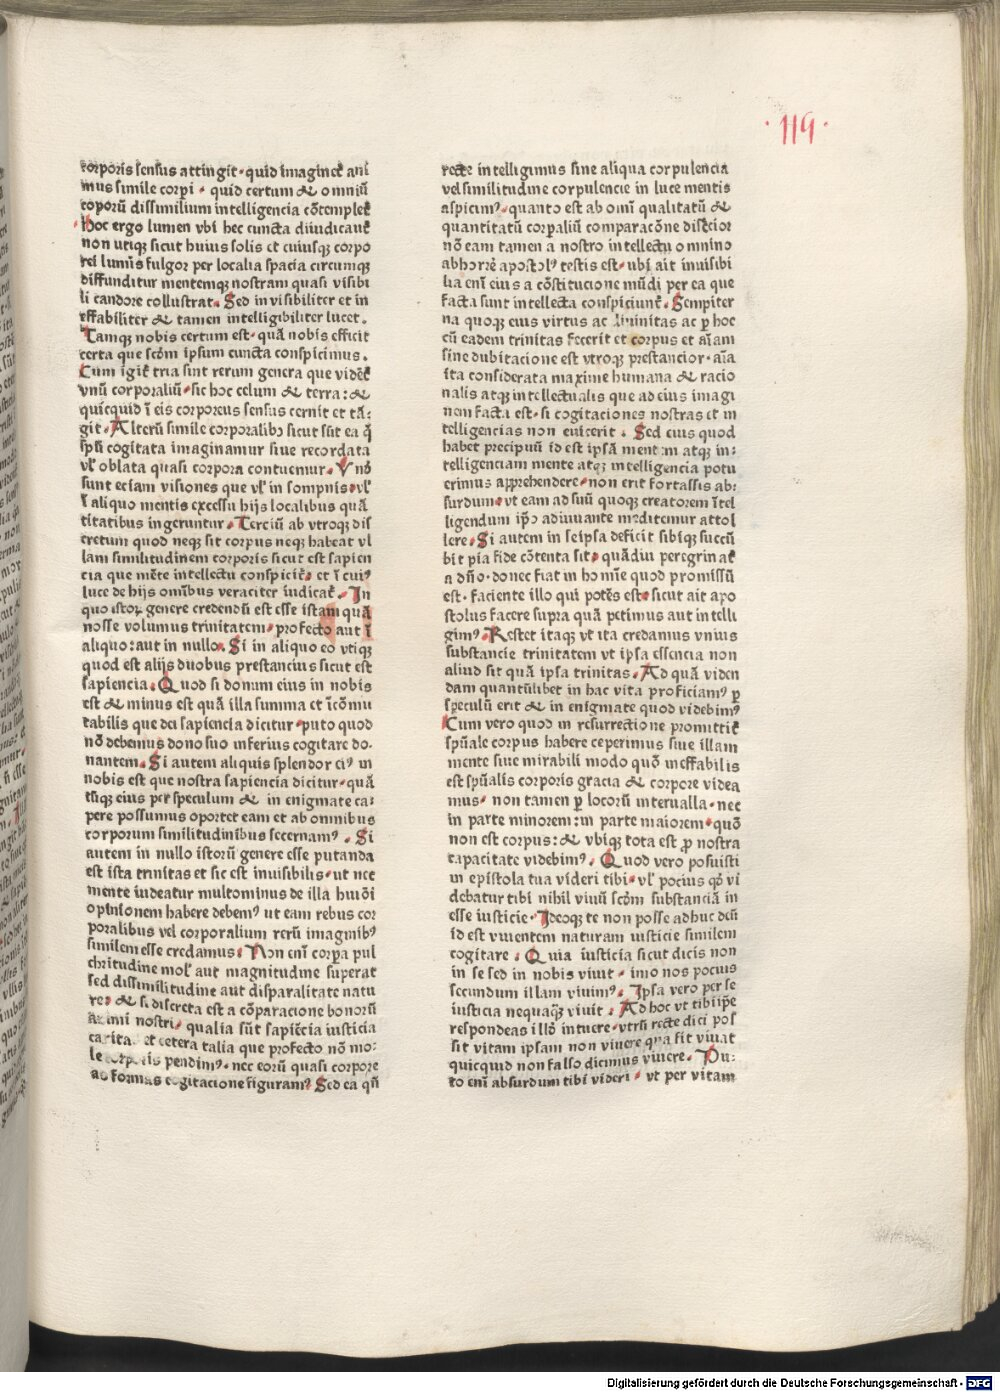 ·119·
corporis sensus attingit· quid imaginet̄ ani
mus simile corpi̅ · quid certum & omniū
coporū dissimilium intelligencia cōtemplet̄
hoc ergo lumen vbi hec cuncta diiudicant̄
non utiqꝫ sicut huius solis et cuiusqꝫ corpo
rei lumīs fulgor per localia spacia circumqꝫ
diffunditur mentemqꝫ nostram quasi visibi
li candore collustrat. Sed in visibiliter et in
effabiliter & tamen intelligibiliter lucet.
Tamqꝫ nobis certum est· quā nobis efficit
certa que scōm ipsum cuncta conspicimus.
Cum igit̄ tria sint rerum genera que vident̄
vnū corporaliū· sic hoc celum & terra: &
quicquid ī eis corporeus sensus cernit et tā⸗
git· Alterū simile corporalibꝰ sicut sūt ea q̄
spū cogitata imaginamur siue recordata
vl̓ oblata quasi corpora contuemur. Vnō
sunt eciam visiones que vl̓ in sompnis· vl̓
ī aliquo mentis excessu hijs localibus quā
titatibus ingeruntur. Terciū ab vtroqꝫ dis
cretum quod neqꝫ sit corpus neqꝫ habeat vl
lam similitudinem corporis sicut est sapien
cia que mēte intellectu conspicit̄· et ī cuiꝰ
luce de hijs omībus veraciter iudicat̄. In
quo istoꝝ genere credendū est esse istam quā
nosse volumus trinitatem· profecto aut ī
aliquo: aut in nullo. Si in aliquo eo vtiqꝫ
quod est alijs duobus prestancius sicut est
sapiencia. Quod si donum eius in nobis
est & minus est quā illa summa et īcōmu
tabilis que dei sapiencia dicitur· puto quod
nō debemus dono suo inferius cogitare do⸗
nantem. Si autem aliquis splendor eiꝰ in
nobis est que nostra sapiencia dicitur· quā
tūqꝫ eius per speculum & in enigmate ca⸗
pere possumus oportet eam et ab omnibus
corporum similitudinibus secernamꝰ. Si
autem in nullo istorū genere esse putanda
est ista trinitas et sic est inuisibilis· ut nec
mente iudeatur multominus de illa huiōi
opinionem habere debemꝰ ut eam rebus cor
poralibus vel corporalium rerū imaginibꝰ
similem esse credamus· Non enī corpa̅ pul
chritudine molꝰ aut magnitudine superat
sed dissimilitudine aut disparalitate natu
re· & si discreta est a cōparacione bonorū
animi nostri· qualia sūt sapiēcia iusticia
caritas et cetera talia que profecto nō mo⸗
le corporis pendimꝰ· nec eorū quasi corpore
as formas cogitacione figuramꝰ Sed ea qn̄
recte intelligimus sine aliqua corpulencia
vel similitudine corpulencie in luce mentis
aspicimꝰ· quanto est ab omī qualitatū &
quantitatū corpaliū comparacōne discrecior
nō eam tamen a nostro intellectu omnino
abhorrē apostolꝰ testis est· ubi ait inuisibi
lia enī eius a cōstitucione mūdi per ea que
facta sunt intellecta conspiciunt̄. Sempiter
na quoqꝫ eius virtus ac diuinitas ac ꝑ hoc
cū eadem trinitas fecerit et corpus et aīam
sine dubitacione est vtroqꝫ prestancior· aīa
ita considerata maxime humana & racio
nalis atqꝫ intellectualis que ad eius imagi
nem facta est· si cogitaciones nostras et in
telligencias non euicerit. Sed eius quod
habet precipuū id est ipsā mentem atqꝫ in⸗
telligenciam mente atqꝫ intelligencia potu
erimus apprehendere· non erit fortassis ab⸗
surdum· vt eam ad suū quoqꝫ creatorem ītel
ligendum ip̄o adiuuante meditemur attol
lere. Si autem in seipsa deficit sibiqꝫ succū
bit pia fide cōtenta sit· quādiu peregrinat̄
a dn̄o· donec fiat in homīe quod promissū
est· faciente illo qui potēs est· sicut ait apo
stolus facere supra quā petimus aut intelli
gimꝰ. Restet itaqꝫ vt ita credamus vnius
substancie trinitatem vt ipsa essencia non
aliud sit quā ipsa trinitas. Ad quā viden
dam quantūlibet in hac vita proficiamꝰ ꝑ
speculū erit & in enigmate quod videbimꝰ
Cum vero quod in resurrectione promittit̄
spūale corpus habere ceperimus siue illam
mente siue mirabili modo quō ineffabilis
est spūalis corporis gracia & corpore videa
mus· non tamen ꝑ locorū interualla· nec
in parte minorem: in parte maiorem· quō
non est corpus: & vbiqꝫ tota est ꝓ nostra
capacitate videbimꝰ. Quod vero posuisti
in epistola tua videri tibi· vl̓ pocius qd̓ vi
debatur tibi nihil viuū scōm substanciā in
esse iusticie· Ideoqꝫ te non posse adhuc deū
id est viuentem naturam iusticie similem
cogitare. Quia iusticia sicut dicis non
in se sed in nobis viuit· imo nos pocius
secundum illam viuimꝰ. Ipsa vero per se
iusticia nequaqꝫ̄ viuit. Ad hoc vt tibi ip̄e
respondeas illd̓ intuere· vtrū recte dici pos
sit vitam ipsam non viuere qua fit viuat
quicquid non falso dicimus viuere. Pu⸗
to enī absurdum tibi videri· vt per vitam
Digitalisierung gefördert durch die Deutsche Forschungsgemeinschaft · DFG